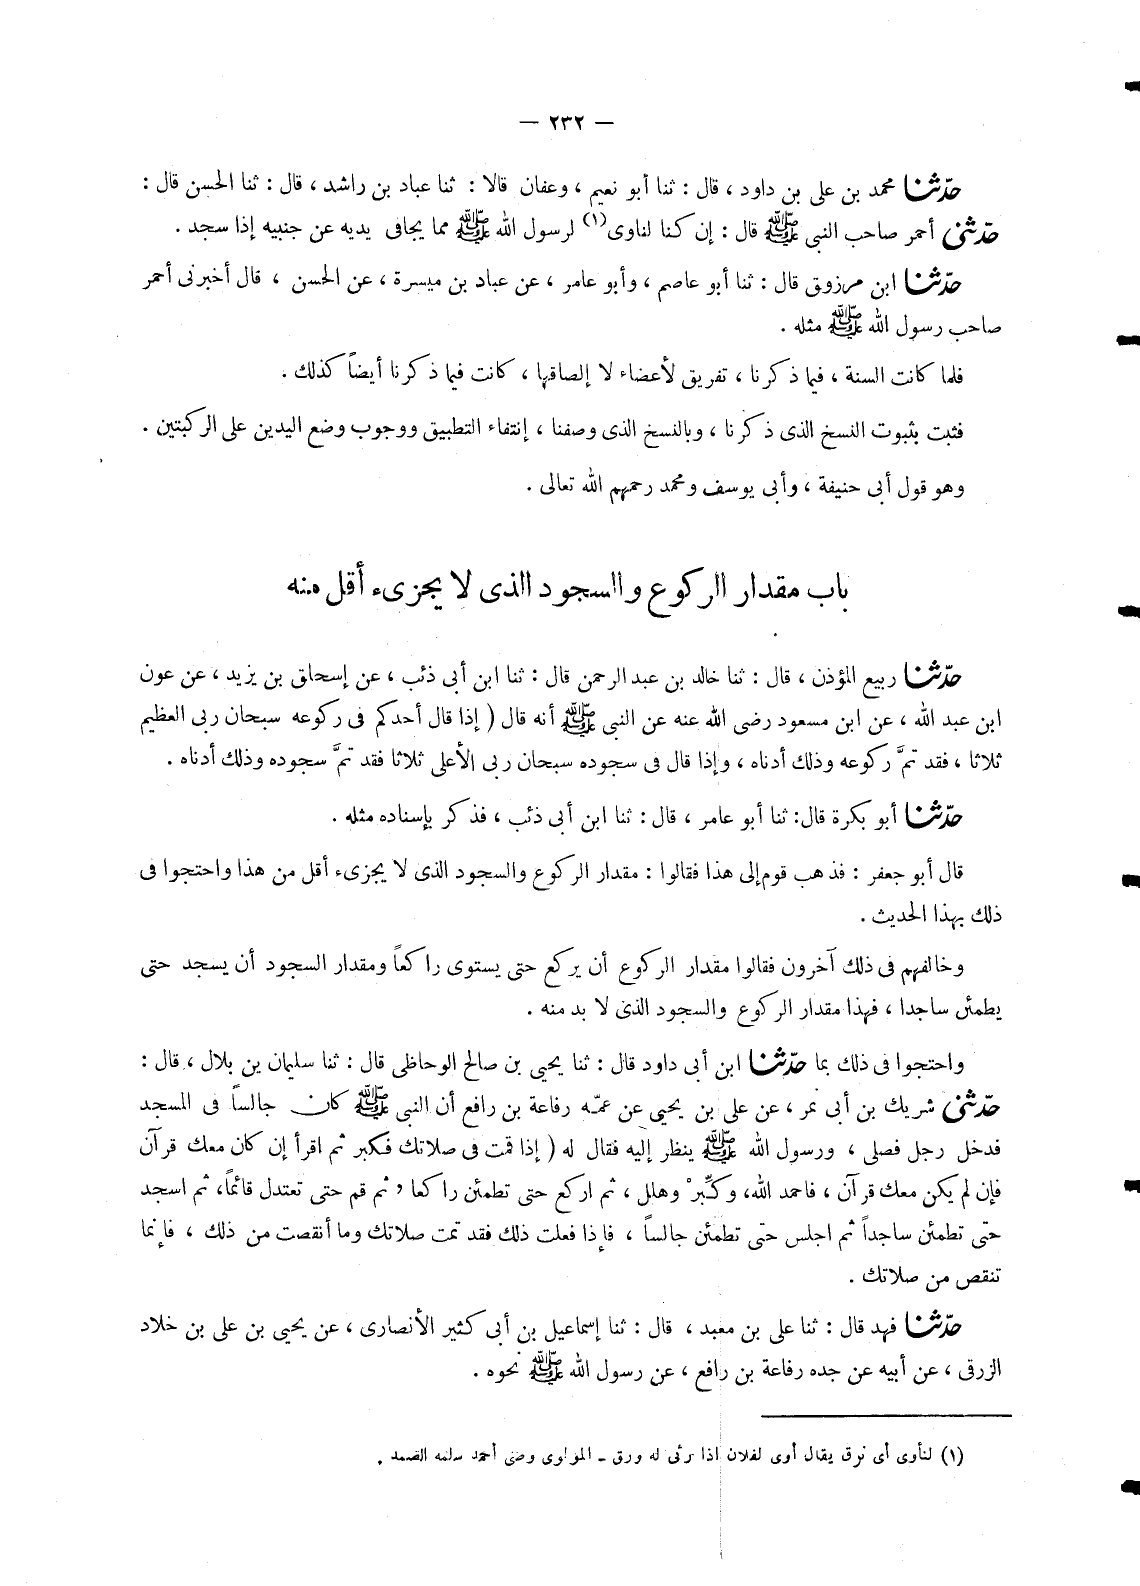 — ٢٣٢ —
حدّثنا محمد بن على بن داود ، قال : ثنا أبو نعيم ، وعفان قالا : ثنا عباد بن راشد ، قال : ثنا الحسن قال :
حدّثنى أحمر صاحب النبى ﷺ قال : إن كنا لناوى(١) لرسول الله ﷺ مما يجافى يديه عن جنبيه إذا سجد .
حدّثنا ابن مرزوق قال : ثنا أبو عاصم ، وأبو عامر ، عن عباد بن ميسرة ، عن الحسن ، قال أخبرنى أحمر
صاحب رسول الله ﷺ مثله .
فلما كانت السنة ، فيما ذكرنا ، تفريق لأعضاء لا إلصاقها ، كانت فيما ذكرنا أيضاً كذلك .
فثبت بثبوت النسخ الذى ذكرنا ، وبالنسخ الذى وصفنا ، إنتفاء التطبيق ووجوب وضع اليدين على الركبتين .
وهو قول أبى حنيفة ، وأبى يوسف ومحمد رحمهم الله تعالى .
باب مقدار الركوع والسجود الذى لا يجزىء أقل منه
حدّثنا ربيع المؤذن ، قال : ثنا خالد بن عبد الرحمن قال : ثنا ابن أبى ذئب ، عن إسحاق بن يزيد ، عن عون
ابن عبد الله ، عن ابن مسعود رضى الله عنه عن النبى ﷺ أنه قال ( إذا قال أحدكم فى ركوعه سبحان ربى العظيم
ثلاثا ، فقد تمَّ ركوعه وذلك أدناه ، وإذا قال فى سجوده سبحان ربى الأعلى ثلاثا فقد تمَّ سجوده وذلك أدناه .
حدّثنا أبو بكرة قال: ثنا أبو عامر ، قال : ثنا ابن أبى ذئب ، فذكر بإسناده مثله .
قال أبو جعفر : فذهب قوم إلى هذا فقالوا : مقدار الركوع والسجود الذى لا يجزىء أقل من هذا واحتجوا فى
ذلك بهذا الحديث .
وخالفهم فى ذلك آخرون فقالوا مقدار الركوع أن يركع حتى يستوى راكعاً ومقدار السجود أن يسجد حتى
يطمئن ساجدا ، فهذا مقدار الركوع والسجود الذى لا بد منه .
واحتجوا فى ذلك بما حدّثنا ابن أبى داود قال : ثنا يحيى بن صالح الوحاظى قال : ثنا سليمان بن بلال ، قال :
حدّثنى شريك بن أبى نمر ، عن على بن يحيى عن عمّه رفاعة بن رافع أن النبى ﷺ كان جالساً فى المسجد
فدخل رجل فصلى ، ورسول الله ﷺ ينظر إليه فقال له ( إذا قمت فى صلاتك فكبر ثم اقرأ إن كان معك قرآن
فإن لم يكن معك قرآن ، فاحمد الله، وكبِّرْ وهلل ، ثم اركع حتى تطمئن راكعا ، ثم قم حتى تعتدل قائماً، ثم اسجد
حتى تطمئن ساجداً ثم اجلس حتى تطمئن جالساً ، فإذا فعلت ذلك فقد تمت صلاتك وما أنقصت من ذلك ، فإنما
تنقص من صلاتك .
حدّثنا فهد قال : ثنا على بن معبد ، قال : ثنا إسماعيل بن أبى كثير الأنصارى ، عن يحيى بن على بن خلاد
الزرقى ، عن أبيه عن جده رفاعة بن رافع ، عن رسول الله ﷺ نحوه .
(١) لنأوى أى نرق يقال أوى لفلان اذا رئى له ورق ـ المولوى وصى أحمد سلمه الصمد .